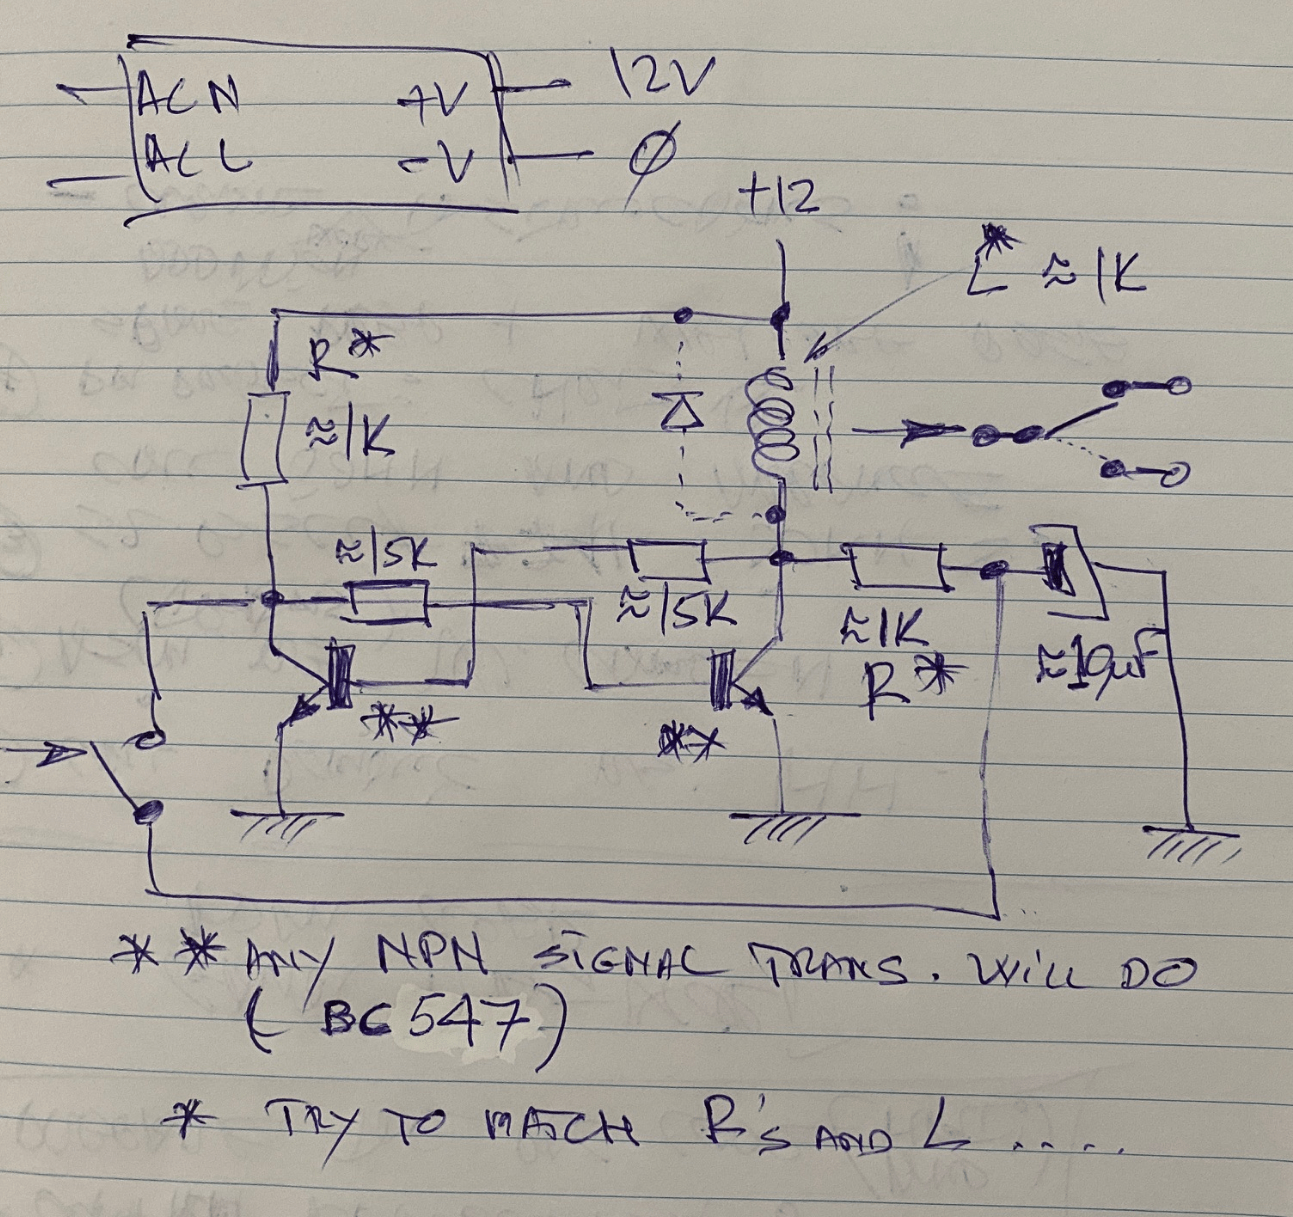 ACN +V 12V
ACL -V Ø
+12
L* ≈1K
R*
≈1K
≈15K
≈15K
≈1K
R*
≈10µF
**
**
** ANY NPN SIGNAL TRANS. WILL DO
( BC547)
* TRY TO MATCH R's AND L .....